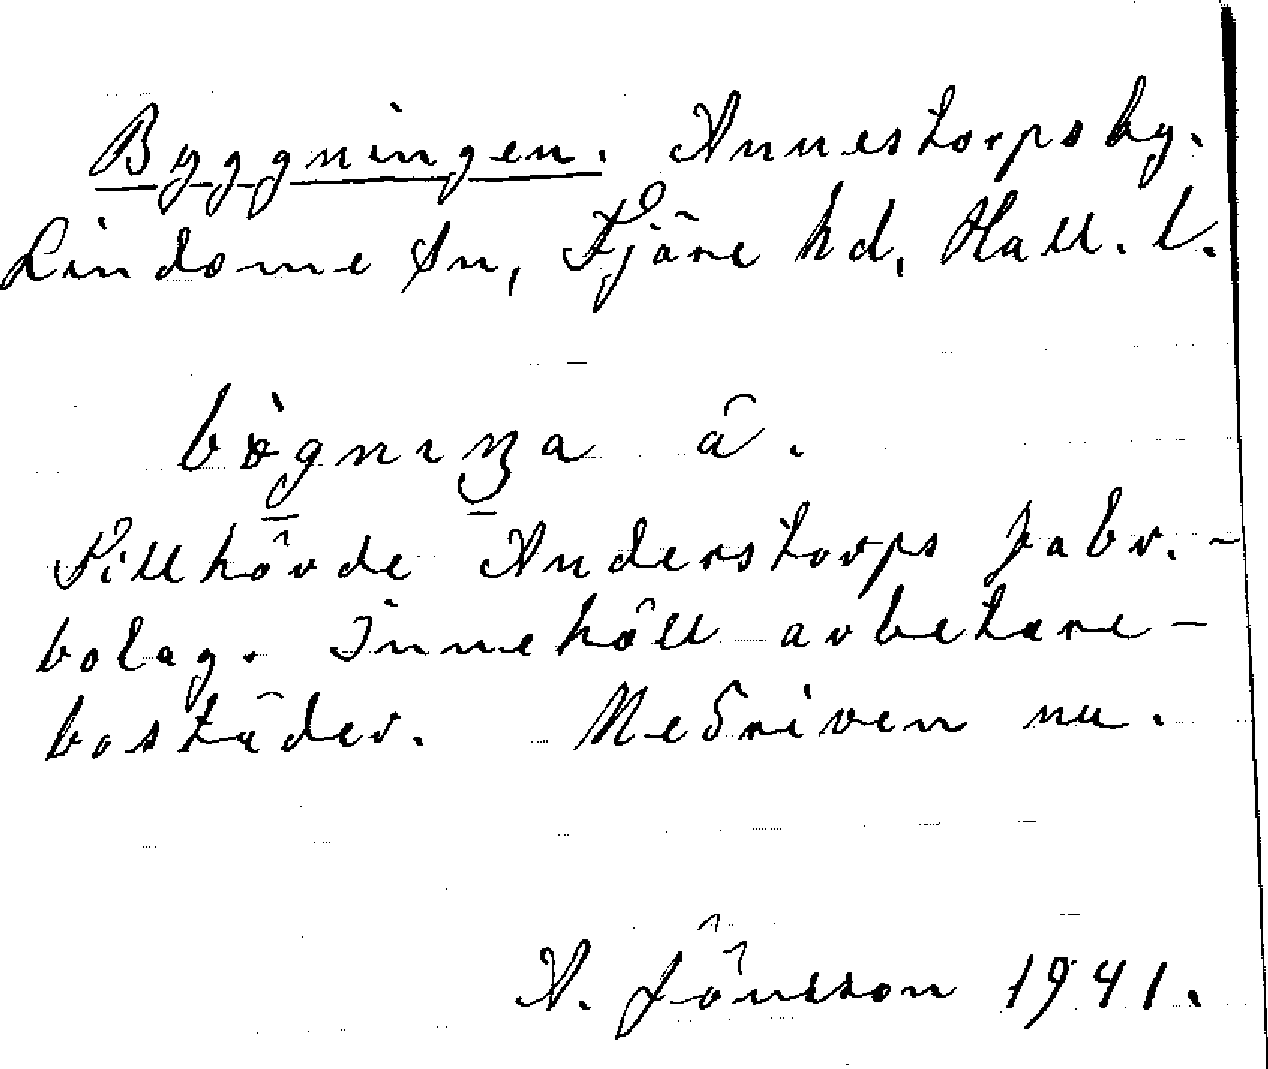 Byggningen. Annestorps by.
Lindome sn, Fjäre hd, Hall. l.
bøgnıŋa â.
Tillhörde Anderstorps fabr.-
bolag. Innehöll arbetare-
bostäder. Nedriven nu.
A. Jönsson 1941.